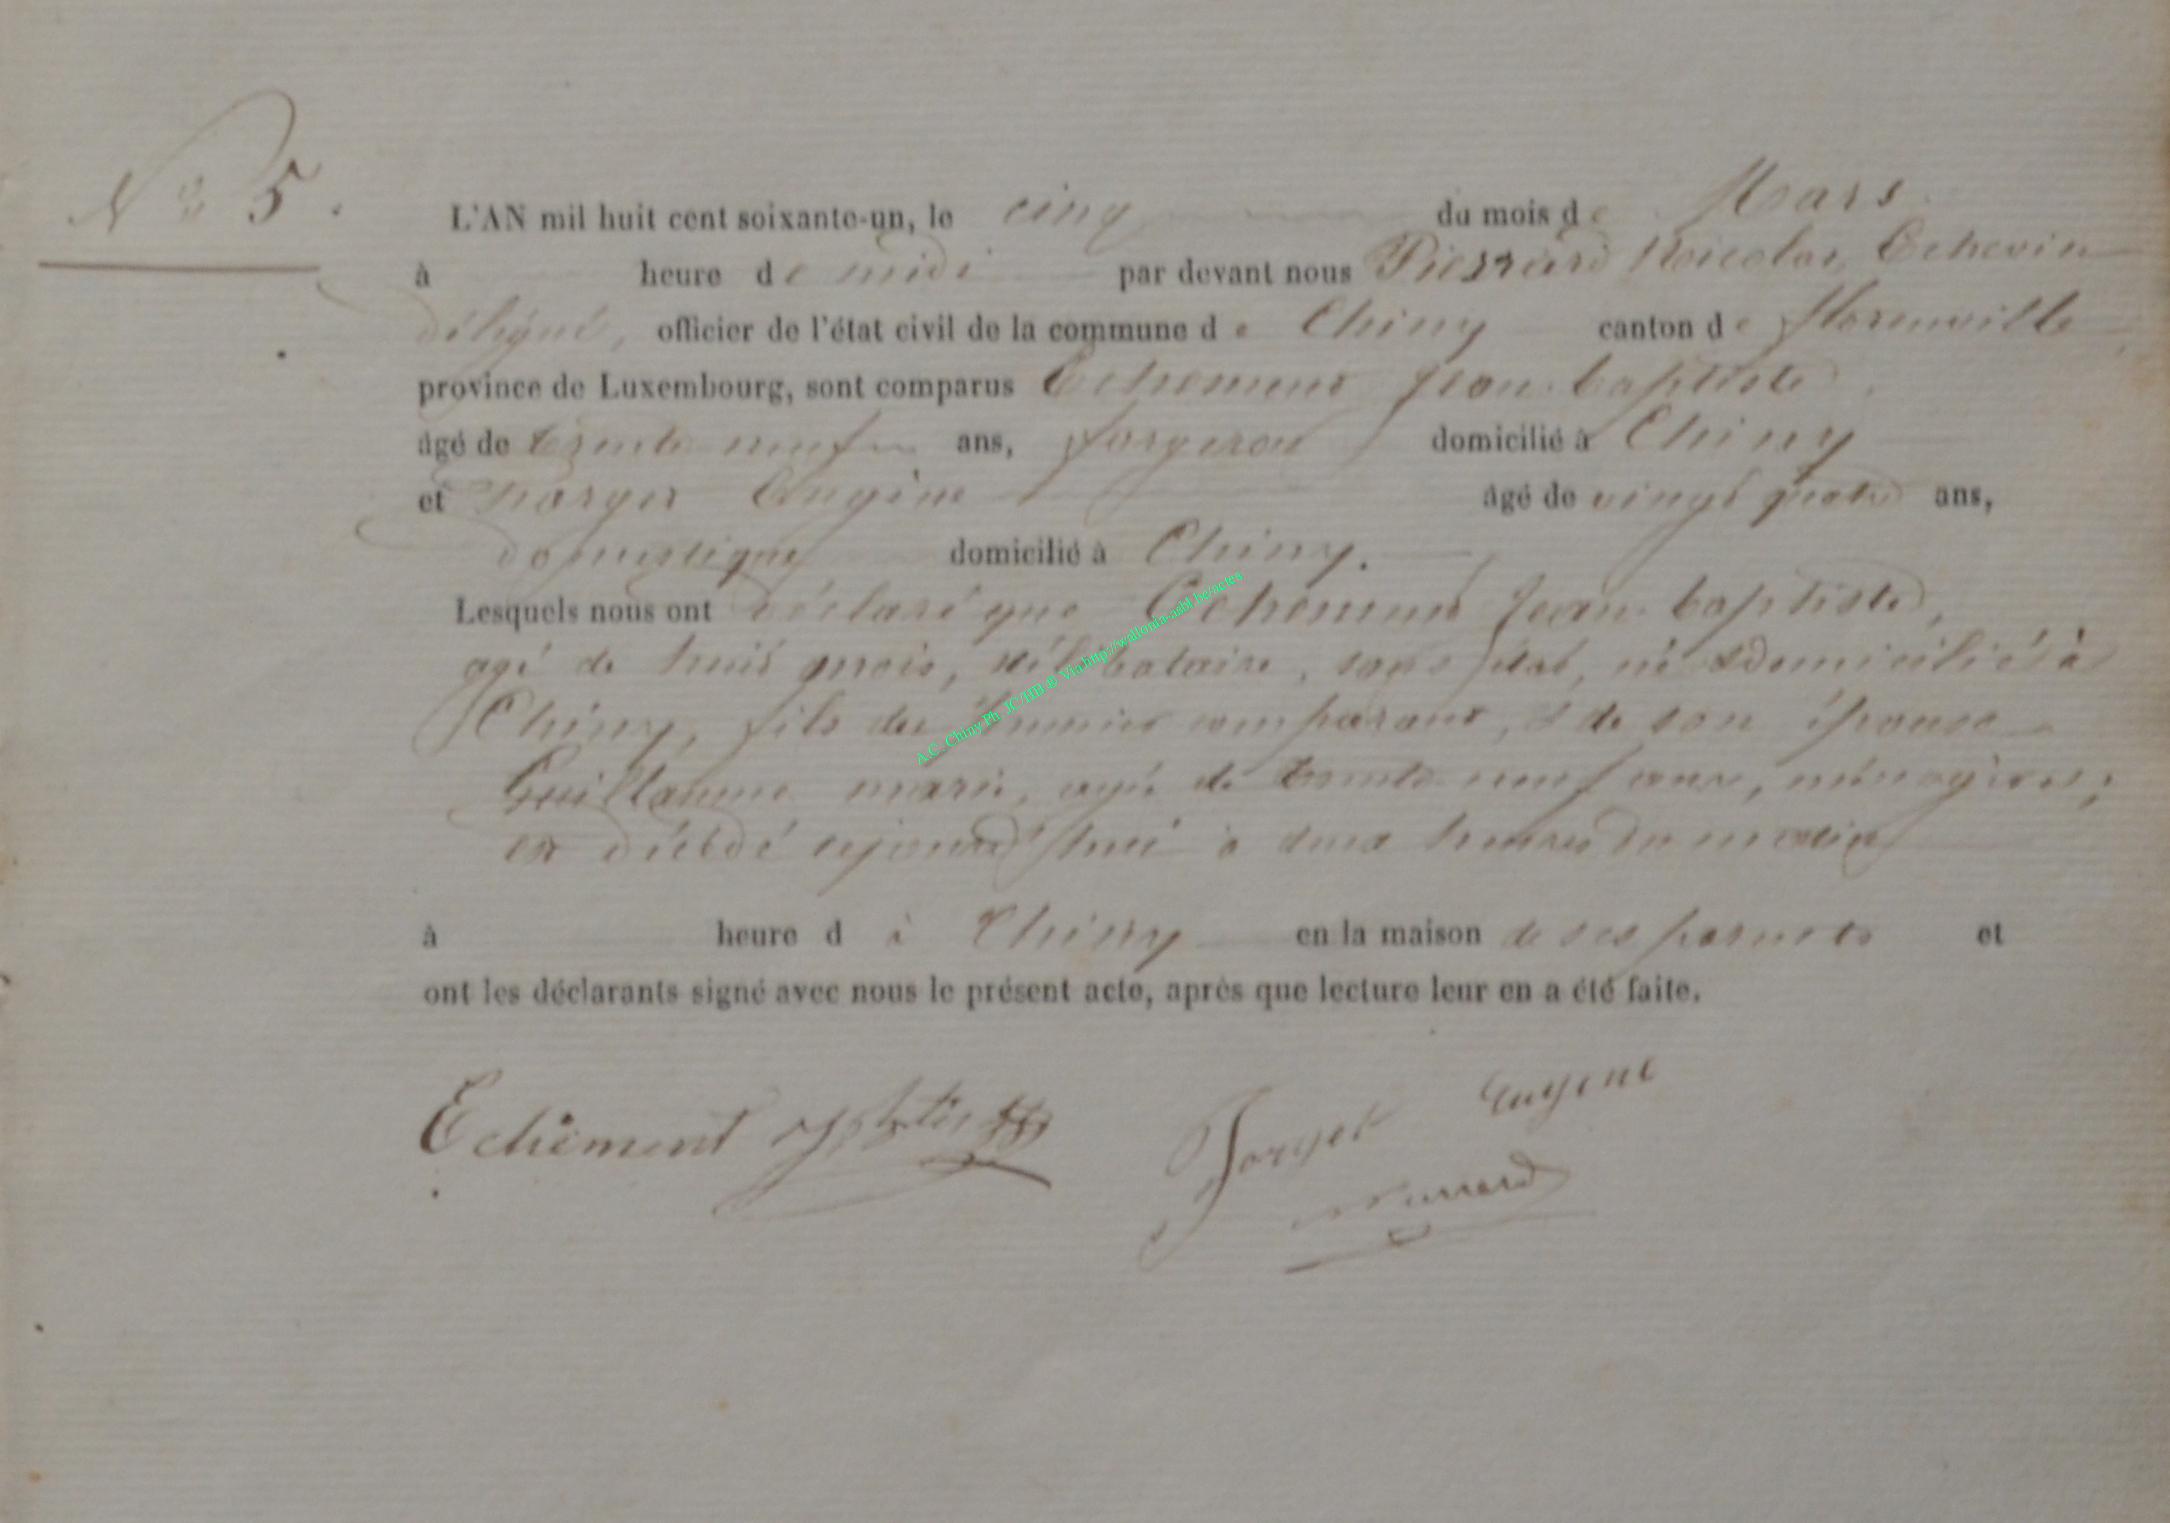 N° 5.
L'AN mil huit cent soixante-un, le cinq du mois de Mars
à heure de midi par devant nous Pierrard Nicolas, Echevin
délégué, officier de l'état civil de la commune de Chiny canton de Florenville
province de Luxembourg, sont comparus Echement Jean baptiste
âgé de trente neuf ans, forgeron domicilié à Chiny
et Eugène âgé de vingt quatre ans,
domestique domicilié à Chiny.
Lesquels nous ont déclaré que Echement Jean baptiste,
agé de huit mois, célibataire, sans état, né & domicilié à
Chiny, fils du premier comparant, & de son épouse
Guillaume marie, agée de trente neuf ans, ménagère;
est décédé aujourd'hui à deux heures du matin
à heure d à Chiny en la maison de ses parents et
ont les déclarants signé avec nous le présent acte, après que lecture leur en a été faite.
Echement Jorget Eugene
Pierrard
A.C. Chiny Ph. JC/HB © Via http://wallonia-asbl.be/actes